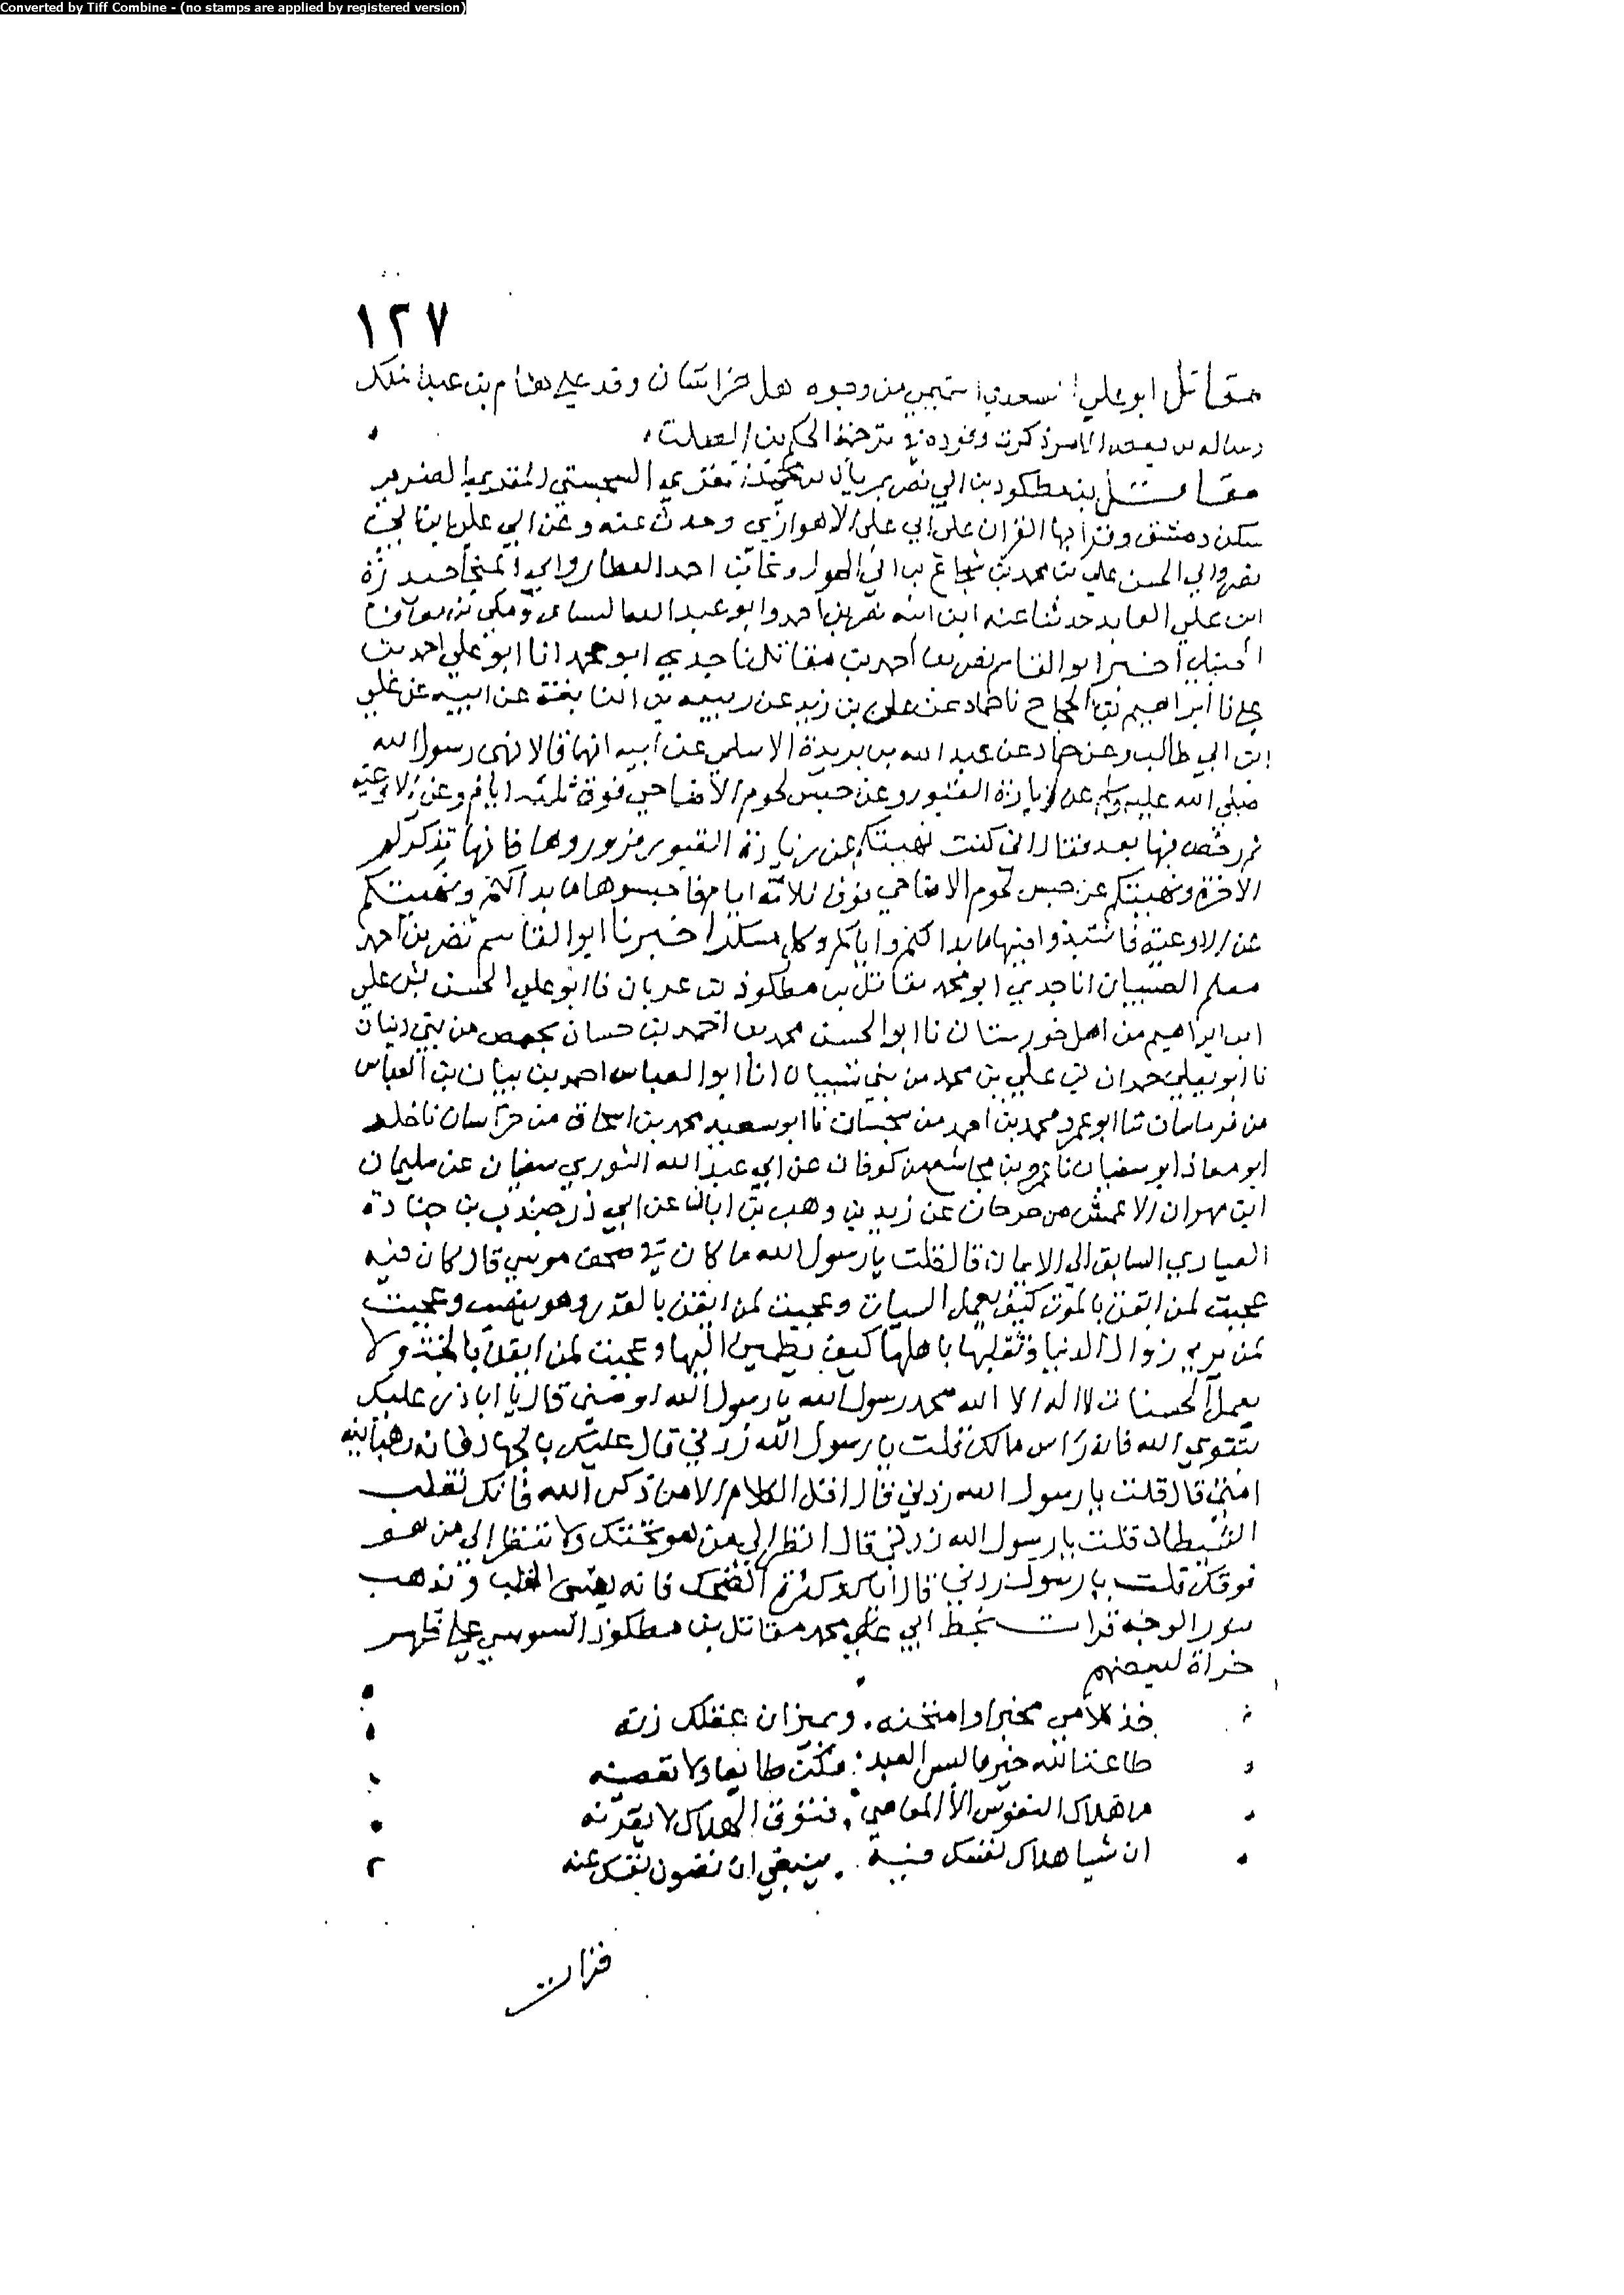 Converted by Tiff Combine - (no stamps are applied by registered version)
١٢٧
مقاتل ابو علي السعدي التميمي من وجوه اهل خراسان وقد على هشام بن عبد الملك
ذكرت وفوده في ترجمة الحكم بن الصلت
مقاتل بن مطكود بن ابي نصر المقري السجستي المقدمي الضرير
سكن دمشق وقرا بها القران على ابي علي الاهوازي وحدث عنه وعن ابي علي
نصر وابي الحسن علي بن محمد بن شجاع بن ابي الهول احمد العطار وابي
ابن علي العابد حدثنا عنه ابن ابنه نصر بن احمد وابو عبد الله
اخبرنا ابو القاسم نصر بن احمد بن مقاتل نا جدي ابو محمد انا ابو علي احمد بن
علي نا ابراهيم بن الحجاج نا حماد عن علي بن زيد عن ربيعه بن النابغة عن ابيه عن علي
ابن ابي طالب وعن حماد عن عبد الله بن بريدة الاسلمي عن ابيه انهما قالا نهى رسول الله
صلى الله عليه وسلم عن زيارة القبور وعن حبس لحوم الاضاحي فوق ثلثه ايام وعن الاوعيه
ثم رخص فيها بعد فقال اني كنت نهيتكم عن زيارة القبور فزوروها فانها تذكركم
الاخرة ونهيتكم عن حبس لحوم الاضاحي فوق ثلاثه ايام فاحبسوها ما بدا لكم ونهيتكم
عن الاوعية فانتبذوا فيها ما بدا لكم واياكم وكل مسكر اخبرنا ابو القاسم نصر بن احمد
معلم الصبيان انا جدي ابو محمد مقاتل بن مطكوذ بن عربان نا ابو علي الحسن بن علي
ابن ابراهيم من اهل خورستان نا ابو الحسن محمد بن احمد بن حسان بحمص من بني دنيان
نا ابو يعلى حمدان بن علي بن محمد من بني شيبان انا ابو العباس احمد بن بيان بن العباس
من نا ابو عمرو محمد بن احمد من سجستان نا ابو سعيد محمد بن اسحاق من خراسان نا خلد
ابو معاذ ابو سفيان نا عمرو بن مجاشع من كوفان عن ابي عبد الله الثوري سفيان عن سليمان
ابن مهران الاعمش من جرجان عن زيد بن وهب بن ابان عن ابي ذر جندب بن جنادة
السابق الى الايمان قال قلت يا رسول الله ما كان في صحف موسى قال كان فيه
عجبت لمن ايقن بالموت كيف يعمل السيات وعجبت لمن ايقن بالقدر وهو ينصب وعجبت
لمن يرى زوال الدنيا وتقلبها باهلها كيف يطمين اليها وعجبت لمن ايقن بالجنة ولا
يعمل الحسنات لا اله الا الله محمد رسول الله يا رسول الله اوصني قال يا ابا ذر عليك
بتقوى الله فانه راس مالك قلت يا رسول الله زدني قال عليك بالجهاد فانه رهبانيه
امتي قال قلت يا رسول الله زدني قال اقل الكلام الا من ذكر الله فانك تغلب
الشيطان قلت يا رسول الله زدني قال انظر الى من هو تحتك ولا تنظر الى من هو
فوقك قلت يا رسول زدني قال اياك وكثرة الضحك فانه يقسى القلب وتذهب
بنور الوجه قرات بخط ابي علي محمد مقاتل بن مطكوذ السوسي على ظهر
لبعضهم
خذ كلامي مخبرا وامتحنه . وبميزان عقلك زنه
طاعة الله خير ما لبس العبد : فكن طايعا ولا تعصينه
ما هلاك النفوس الا المعاصي . فتوق الهلاك لا تقربنه
ان شيا هلاك نفسك فيه . ينبغي ان تصون نفسك عنه
٢
قرات